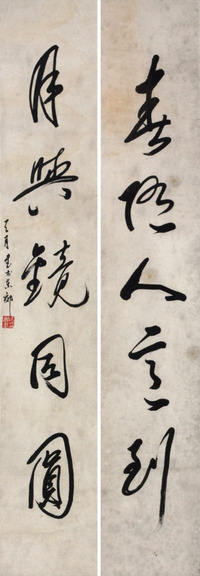 春随人意到
月與鏡同圓